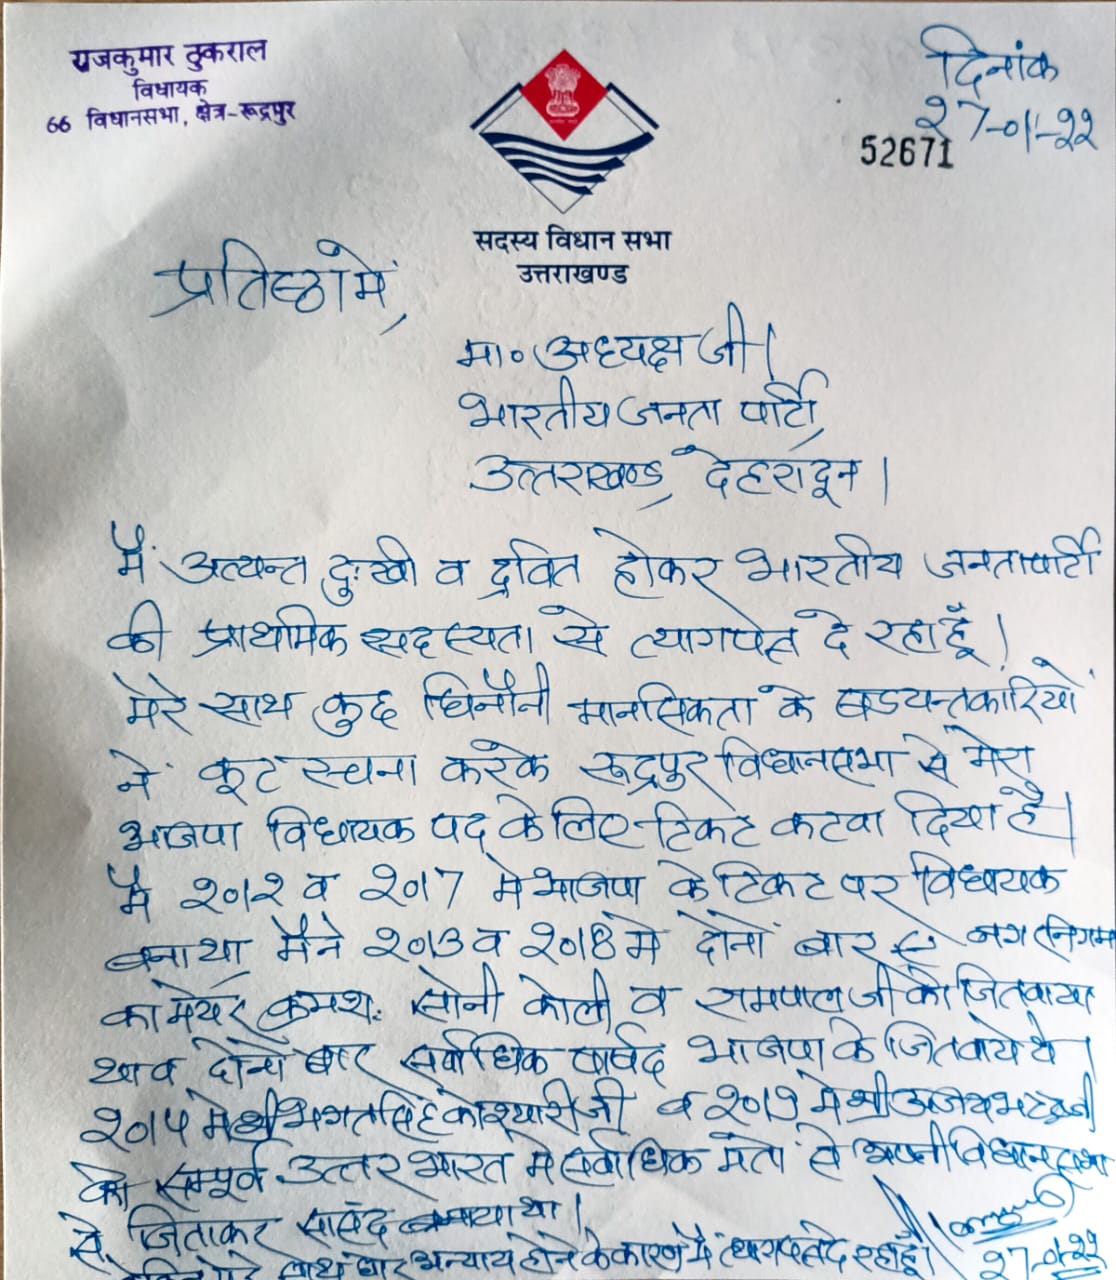 राजकुमार ठुकराल
विधायक
66 विधानसभा, क्षेत्र-रूद्रपुर
दिनांक
२7-01-२२
52671
सदस्य विधान सभा
उत्तराखण्ड
प्रतिष्ठा में,
मा० अध्यक्ष जी।
भारतीय जनता पार्टी,
उत्तराखण्ड, देहरादून।
मैं अत्यन्त दुःखी व द्रवित होकर भारतीय जनता पार्टी
की प्राथमिक सदस्यता से त्यागपत्र दे रहा हूँ।
मेरे साथ कुछ घिनौनी मानसिकता के षडयन्त्रकारियों
ने कूट रचना करके रूद्रपुर विधानसभा से मेरा
भाजपा विधायक पद के लिए टिकट कटवा दिया है।
मै २०1२ व २०17 मे भाजपा के टिकट पर विधायक
बना था मैने २०13 व २०18 मे दोनों बार नगर निगम
का मेयर क्रमशः सोनी कोली व रामपाल जी को जितवाया
था व दोनो बार सर्वाधिक पार्षद भाजपा के जितवाये थे।
२०14 मे श्री भगत सिंह कोश्यारी जी व २०19 मे श्री अजय भट्ट जी
को सम्पूर्ण उत्तर भारत मे सर्वाधिक मतो से अपनी विधानसभा
से जिताकर सांसद बनाया था।
मेरे साथ घोर अन्याय होने के कारण मै त्यागपत्र दे रहा हूँ।
२7-01-२२